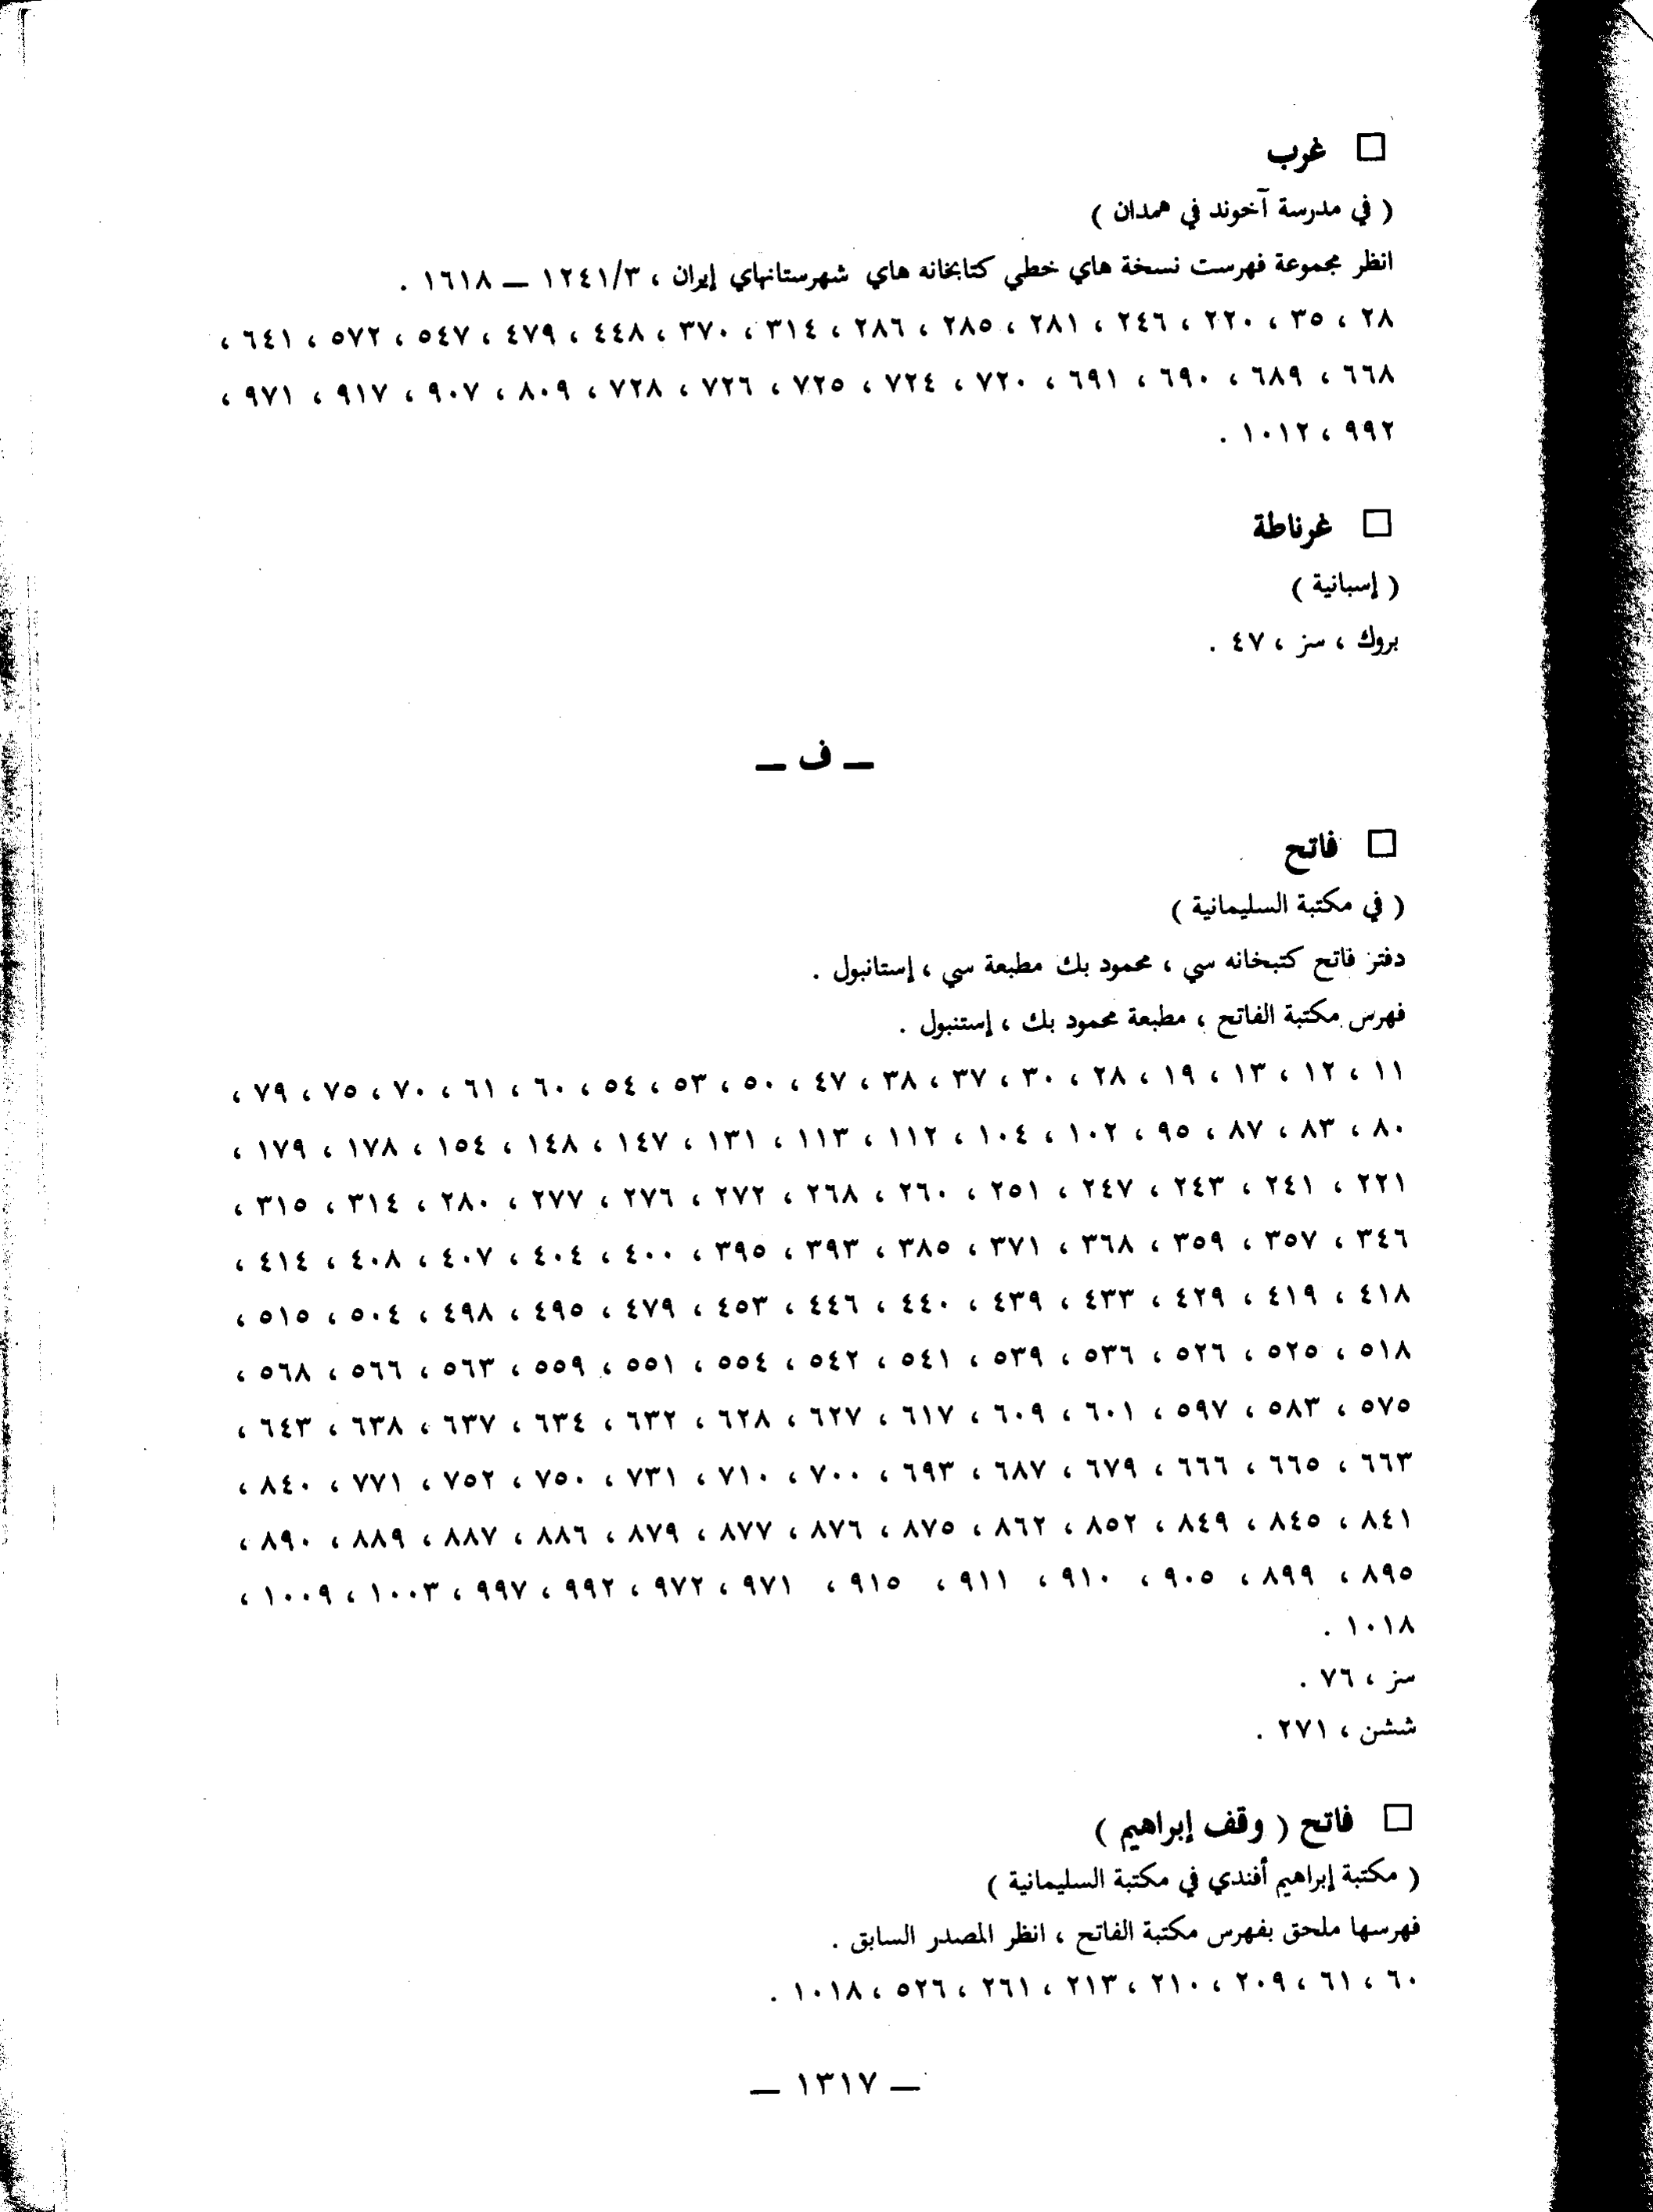 □ غرب
( في مدرسة آخوند في همدان )
انظر مجموعة فهرست نسخة هاي خطي كتابخانه هاي شهرستانهاي إيران ، ١٢٤١/٣ — ١٦١٨ .
٢٨ ، ٣٥ ، ٢٢٠ ، ٢٤٦ ، ٢٨١ ، ٢٨٥ ، ٢٨٦ ، ٣١٤ ، ٣٧٠ ، ٤٤٨ ، ٤٧٩ ، ٥٤٧ ، ٥٧٢ ، ٦٤١ ،
٦٦٨ ، ٦٨٩ ، ٦٩٠ ، ٦٩١ ، ٧٢٠ ، ٧٢٤ ، ٧٢٥ ، ٧٢٦ ، ٧٢٨ ، ٨٠٩ ، ٩٠٧ ، ٩١٧ ، ٩٧١ ،
٩٩٢ ، ١٠١٢ .
□ غرناطة
( إسبانية )
بروك ، سز ، ٤٧ .
— ف —
□ فاتح
( في مكتبة السليمانية )
دفتر فاتح كتبخانه سي ، محمود بك مطبعة سي ، إستانبول .
فهرس مكتبة الفاتح ، مطبعة محمود بك ، إستنبول .
١١ ، ١٢ ، ١٣ ، ١٩ ، ٢٨ ، ٣٠ ، ٣٧ ، ٣٨ ، ٤٧ ، ٥٠ ، ٥٣ ، ٥٤ ، ٦٠ ، ٦١ ، ٧٠ ، ٧٥ ، ٧٩ ،
٨٠ ، ٨٣ ، ٨٧ ، ٩٥ ، ١٠٢ ، ١٠٤ ، ١١٢ ، ١١٣ ، ١٣١ ، ١٤٧ ، ١٤٨ ، ١٥٤ ، ١٧٨ ، ١٧٩ ،
٢٢١ ، ٢٤١ ، ٢٤٣ ، ٢٤٧ ، ٢٥١ ، ٢٦٠ ، ٢٦٨ ، ٢٧٢ ، ٢٧٦ ، ٢٧٧ ، ٢٨٠ ، ٣١٤ ، ٣١٥ ،
٣٤٦ ، ٣٥٧ ، ٣٥٩ ، ٣٦٨ ، ٣٧١ ، ٣٨٥ ، ٣٩٣ ، ٣٩٥ ، ٤٠٠ ، ٤٠٤ ، ٤٠٧ ، ٤٠٨ ، ٤١٤ ،
٤١٨ ، ٤١٩ ، ٤٢٩ ، ٤٣٣ ، ٤٣٩ ، ٤٤٠ ، ٤٤٦ ، ٤٥٣ ، ٤٧٩ ، ٤٩٥ ، ٤٩٨ ، ٥٠٤ ، ٥١٥ ،
٥١٨ ، ٥٢٥ ، ٥٢٦ ، ٥٣٦ ، ٥٣٩ ، ٥٤١ ، ٥٤٢ ، ٥٥٤ ، ٥٥١ ، ٥٥٩ ، ٥٦٣ ، ٥٦٦ ، ٥٦٨ ،
٥٧٥ ، ٥٨٣ ، ٥٩٧ ، ٦٠١ ، ٦٠٩ ، ٦١٧ ، ٦٢٧ ، ٦٢٨ ، ٦٣٢ ، ٦٣٤ ، ٦٣٧ ، ٦٣٨ ، ٦٤٣ ،
٦٦٣ ، ٦٦٥ ، ٦٦٦ ، ٦٧٩ ، ٦٨٧ ، ٦٩٣ ، ٧٠٠ ، ٧١٠ ، ٧٣١ ، ٧٥٠ ، ٧٥٢ ، ٧٧١ ، ٨٤٠ ،
٨٤١ ، ٨٤٥ ، ٨٤٩ ، ٨٥٢ ، ٨٦٢ ، ٨٧٥ ، ٨٧٦ ، ٨٧٧ ، ٨٧٩ ، ٨٨٦ ، ٨٨٧ ، ٨٨٩ ، ٨٩٠ ،
٨٩٥ ، ٨٩٩ ، ٩٠٥ ، ٩١٠ ، ٩١١ ، ٩١٥ ، ٩٧١ ، ٩٧٢ ، ٩٩٢ ، ٩٩٧ ، ١٠٠٣ ، ١٠٠٩ ،
١٠١٨ .
سز ، ٧٦ .
ششن ، ٢٧١ .
□ فاتح ( وقف إبراهيم )
( مكتبة إبراهيم أفندي في مكتبة السليمانية )
فهرسها ملحق بفهرس مكتبة الفاتح ، انظر المصدر السابق .
٦٠ ، ٦١ ، ٢٠٩ ، ٢١٠ ، ٢١٣ ، ٢٦١ ، ٥٢٦ ، ١٠١٨ .
— ١٣١٧ —